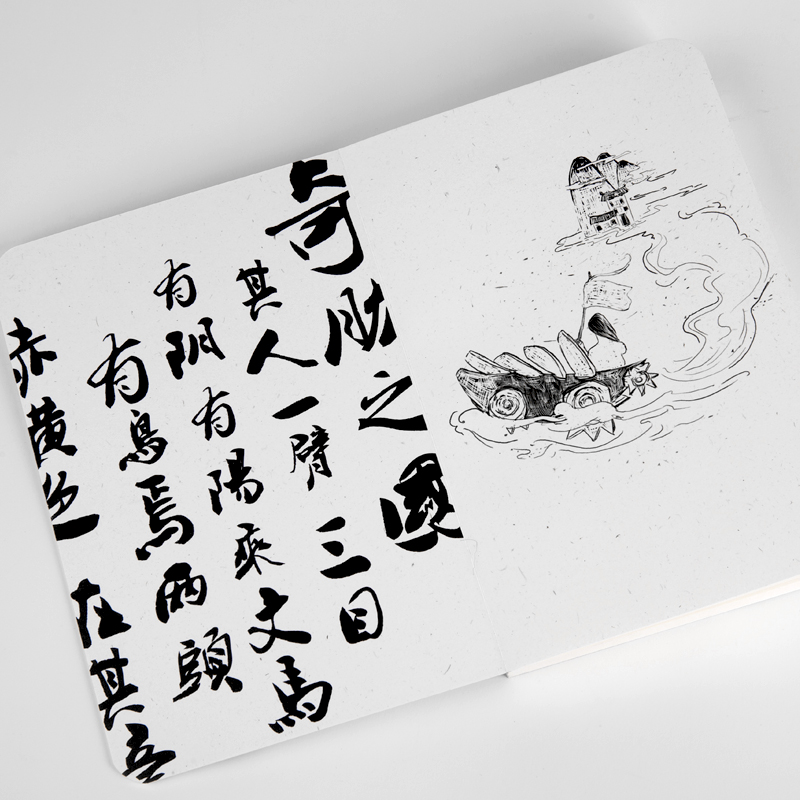 奇肱之國
其人一臂三目
有阴有陽乘文馬
有鳥焉两頭
赤黄色在其旁